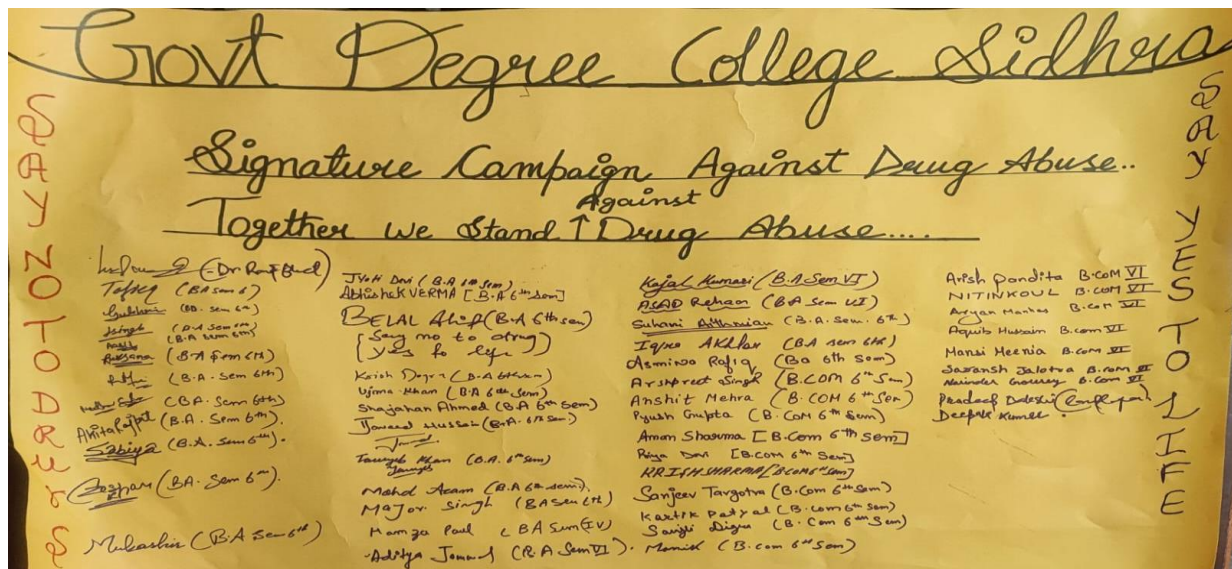 Govt Degree College Sidhra
Signature Campaign Against Drug Abuse..
Against
Together we Stand ↑ Drug Abuse....
SAY NO TO DRUGS
(B.A Sem 6)
(B.A. Sem 6th)
(B.A Sem 6th)
Ruksana (B.A Sem 6th)
(B.A. Sem 6th)
(B.A. Sem 6th)
Akita Rajput (B.A. Sem 6th).
Sabiya (B.A. Sem 6th).
(BA. Sem 6th).
Mubashir (B.A Sem 6th)
Jyoti Devi (B.A 6th Sem)
Abhishek VERMA [B.A 6th Sem]
BELAL Altif (B.A 6th Sem)
[Say no to drug
Yes to life]
(B.A 6th Sem)
Khan (B.A 6th Sem)
Shajahan Ahmed (B.A 6th Sem)
Hussain (B.A. 6th Sem)
Khan (B.A. 6th Sem)
Mohd Azam (B.A 6th Sem).
Major Singh (BA Sem 6th)
Hamza Paul (BA Sem IV)
Aditya (B.A Sem VI).
Kajal Kumari (B.A Sem VI)
ASAD Rehan (B.A Sem VI)
Suhani (B.A. Sem. 6th)
Iqra AKhtar (BA Sem 6th)
Rafiq (Ba 6th Sem)
Arshpreet Singh (B.COM 6th Sem)
Anshit Mehra (B.COM 6th Sem)
Piyush Gupta (B.COM 6th Sem)
Aman Sharma [B.Com 6th Sem]
Priya Devi [B.COM 6th Sem]
KRISH SHARMA [B.COM 6th Sem]
Sanjeev Targotra (B.Com 6th Sem)
Kartik Patyal (B.com 6th Sem)
(B.Com 6th Sem)
(B.com 6th Sem)
Arish Pandita B.COM VI
NITIN KOUL B.COM VI
Aryan B.COM VI
Aquib Hussain B.com VI
Mansi B.com VI
Sawansh Jalotra B.com VI
B.com VI
Deepak Kumar.
SAY YES TO LIFE